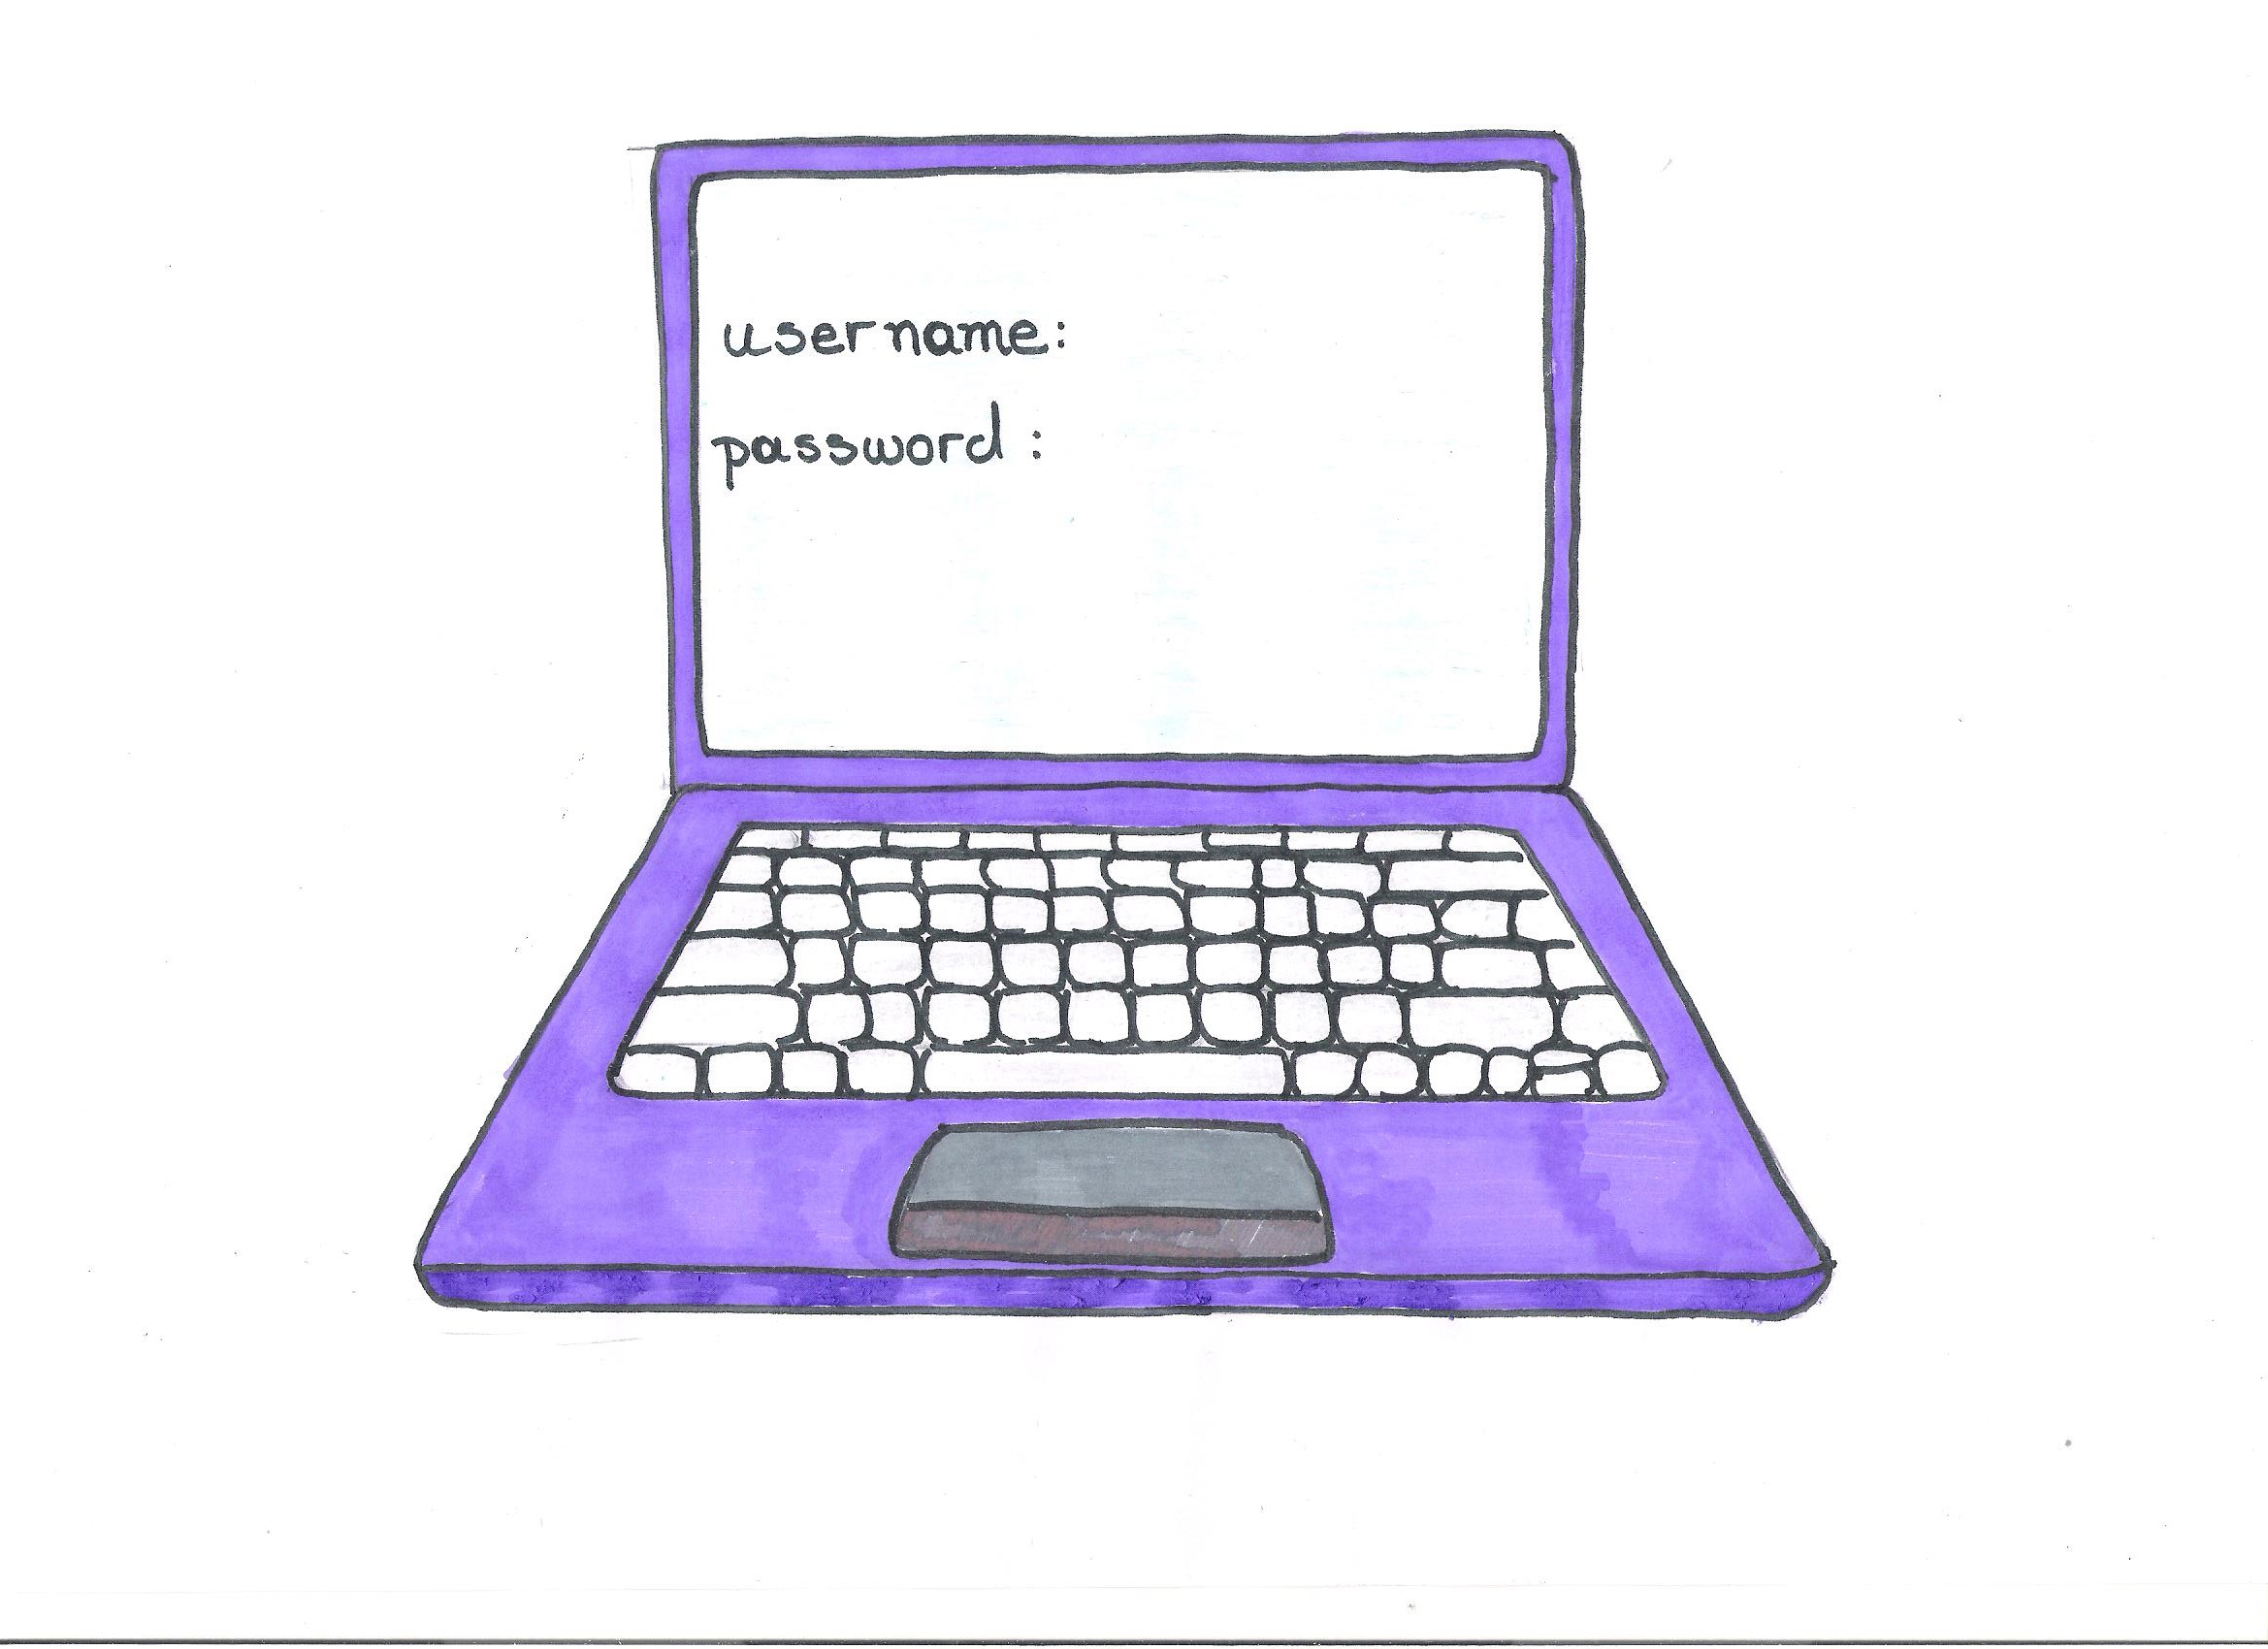 username:
password: